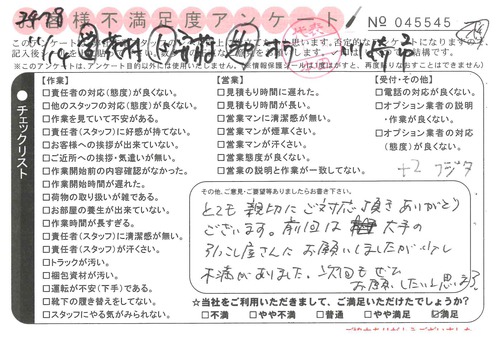 お客様不満足度アンケート
No 045545
【作業】
□責任者の対応(態度)が良くない。
□他のスタッフの対応(態度)が良くない。
□作業を見ていて不安がある。
□責任者(スタッフ)に好感が持てない。
□お客様への挨拶が出来ていない。
□ご近所への挨拶・気遣いが無い。
□作業開始前の内容確認がなかった。
□作業開始時間が遅れた。
□荷物の取り扱いが雑である。
□お部屋の養生が出来ていない。
□作業時間が長すぎる。
□責任者(スタッフ)に清潔感が無い。
□責任者(スタッフ)が汗くさい。
□トラックが汚い。
□梱包資材が汚い。
□運転が不安(下手)である。
□靴下の履き替えをしてない。
□スタッフにやる気がみられない。
【営業】
□見積もり時間に遅れた。
□見積もり時間が長い。
□営業マンに清潔感が無い。
□営業マンが煙草くさい。
□営業マンが汗くさい。
□営業態度が良くない。
□営業の説明と作業が一致してない。
【受付・その他】
□電話の対応が良くない。
□オプション業者の説明
・作業が良くない。
□オプション業者の対応
(態度)が良くない。
チェックリスト
その他、ご意見・ご要望等ありましたらお書き下さい。
とても親切にご対応頂きありがとう
ございます。前回は 大手の
引っこし屋さんにお願いしましたが少し
不満がありました。次回もぜひ
お願いしたいと思います
☆当社をご利用いただきまして、ご満足いただけたでしょうか?
□不満 □やや不満 □普通 □やや満足 ☑満足